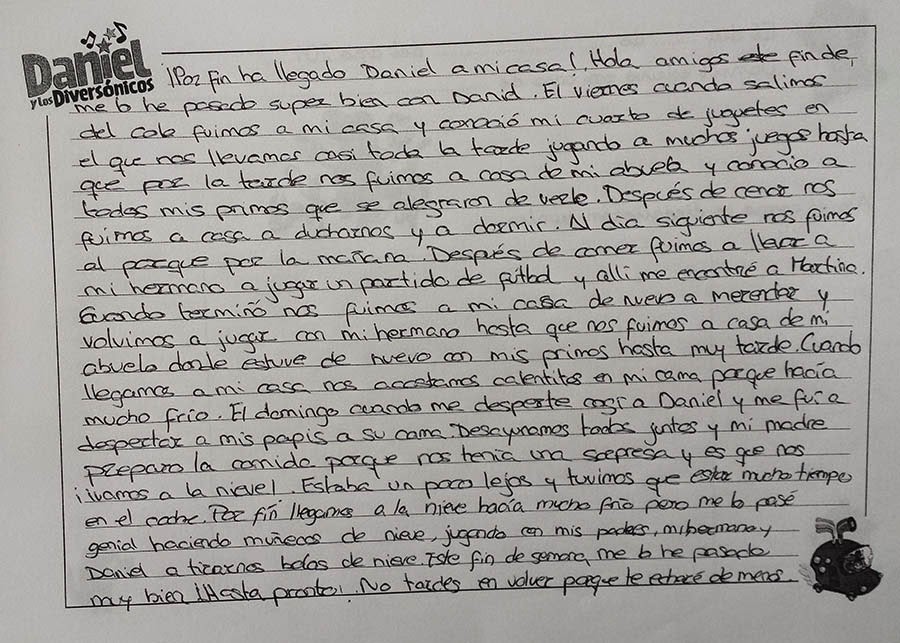 Daniel
y los Diversónicos
¡Por fin ha llegado Daniel a mi casa! Hola amigos este finde,
me lo he pasado super bien con Daniel. El viernes cuando salimos
del cole fuimos a mi casa y conoció mi cuarto de juguetes en
el que nos llevamos casi toda la tarde jugando a muchos juegos hasta
que por la tarde nos fuimos a casa de mi abuela y conocio a
todos mis primos que se alegraron de verle. Después de cenar nos
fuimos a casa a ducharnos y a dormir. Al dia siguiente nos fuimos
al parque por la mañana. Después de comer fuimos a llevar a
mi hermano a jugar un partido de fútbol y alli me encontré a Martina.
Cuando termiño nos fuimos a mi casa de nuevo a merendar y
volvimos a jugar con mi hermano hasta que nos fuimos a casa de mi
abuela donde estuve de nuevo con mis primos hasta muy tarde. Cuando
llegamos a mi casa nos acostamos calentitos en mi cama porque hacía
mucho frío. El domingo cuando me desperte cogí a Daniel y me fui a
despertar a mis papis a su cama. Desayunamos todos juntos y mi madre
preparo la comida porque nos tenia una sorpresa y es que nos
¡ivamos a la nieve!. Estaba un poco lejos y tuvimos que estar mucho tiempo
en el coche. Por fin llegamos a la nieve hacía mucho frio pero me lo pasé
genial haciendo muñecos de nieve, jugando con mis padres, mi hermano y
Daniel a tirarnos bolas de nieve. Este fin de semana me lo he pasado
muy bien ¡Hasta pronto!. No tardes en volver porque te echaré de menos.